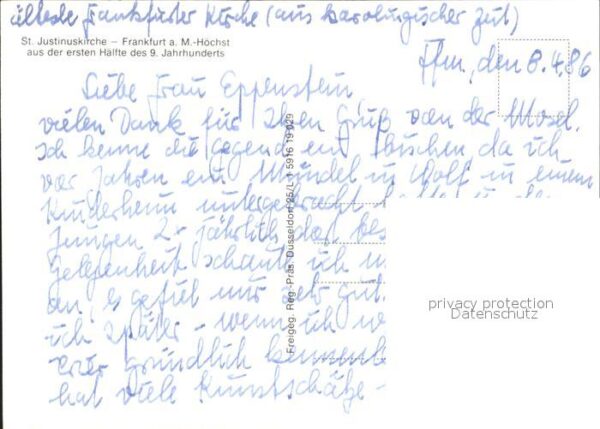 älteste Frankfurter Kirche (aus karolingischer Zeit)
St. Justinuskirche – Frankfurt a. M.-Höchst
aus der ersten Hälfte des 9. Jahrhunderts
Ffm, den 8.4.86
Liebe Frau Eppenstein,
vielen Dank für Ihren Gruß von der Mosel.
Ich kenne die Gegend ein bischen da ich
vor Jahren ein Mündel in Wolf in einem
Kinderheim untergebracht
Jungen 2-jährlich
Gelegenheit schaute ich
an, es gefiel mir sehr gut.
ich später - wenn ich
gründlich
hat viele Kunstschätze -
Freigeg. Reg.-Präs. Düsseldorf 25/L 1 5916 19 029
privacy protection
Datenschutz